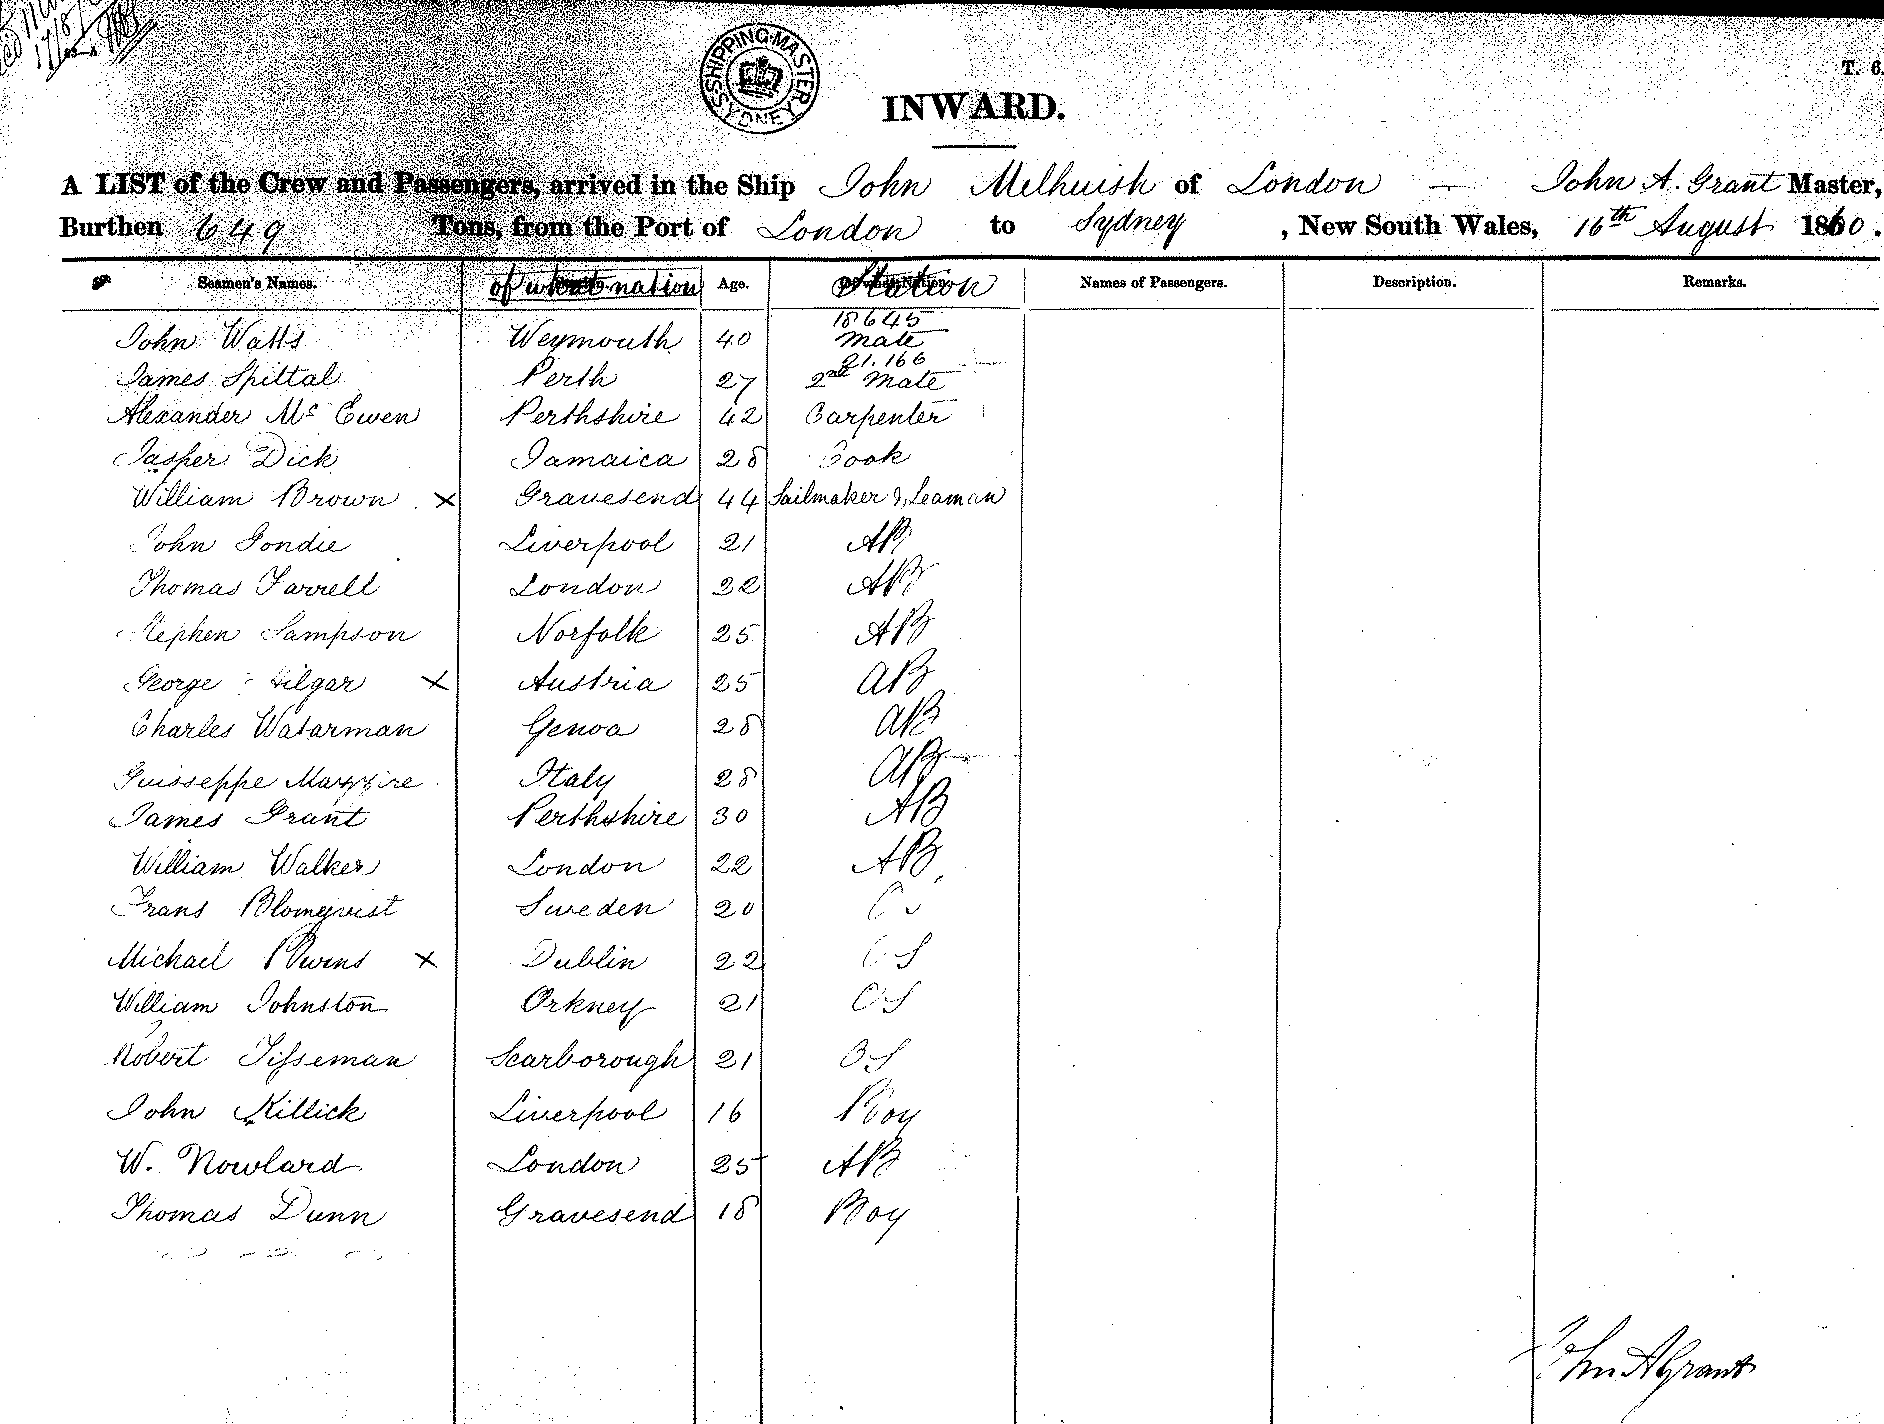 SHIPPING MASTER SYDNEY
T. 6.
INWARD.
A LIST of the Crew and Passengers, arrived in the Ship John Melhuish of London — John A. Grant Master,
Burthen 649 Tons, from the Port of London to Sydney, New South Wales, 16th August 1860.
Seamen's Names. of what nation Age. Station Names of Passengers. Description. Remarks.
18645
John Watts Weymouth 40 Mate
21.166
James Spittal Perth 27 2nd Mate
Alexander Mc Ewen Perthshire 42 Carpenter
Jasper Dick Jamaica 28 Cook
William Brown X Gravesend 44 Sailmaker & Seaman
John Fondie Liverpool 21 AB
Thomas Farrell London 22 AB
Stephen Sampson Norfolk 25 AB
George X Austria 25 AB
Charles Watarman Genoa 28 AB
Guisseppe Italy 28 AB
James Grant Perthshire 30 AB
William Walker London 22 AB
Frans Blomqvist Sweden 20
Michael X Dublin 22 OS
William Johnston Orkney 21 OS
Robert Tisseman Scarborough 21 OS
John Killick Liverpool 16 Boy
W. Nowlard London 25 AB
Thomas Dunn Gravesend 18 Boy
John A Grant